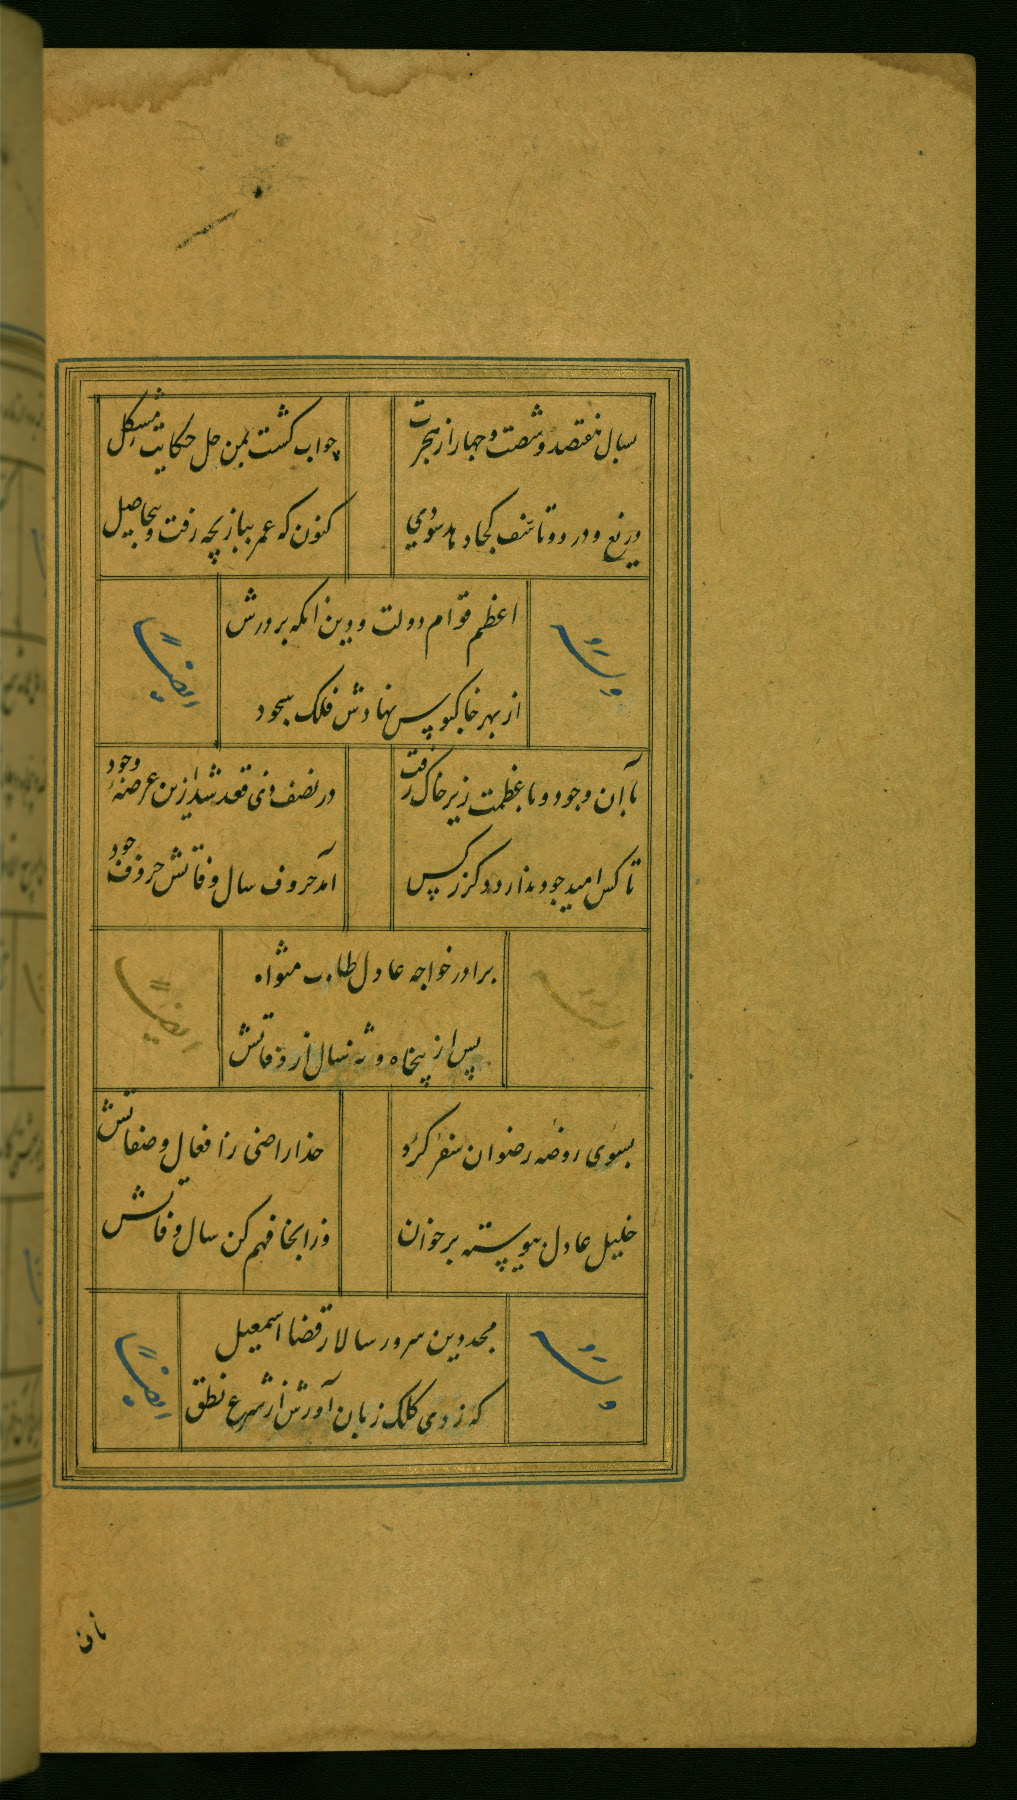 بسال هفتصد و شصت و چهار از هجرت چو آب گشت بمن حل حکایت مشکل
دریغ و درد و تاسف کجا دهد سودی کنون که عمر ببازیچه رفت بیحاصل
وله ایضاً
اعظم قوام دولت و دین انکه بر درش
از بهر خاکبوس نهادش فلک سجود
با آن وجود و با عظمت زیر خاک رفت در نصف ذی قعد شد ازین عرصه وجود
تا کس امید جود ندارد دکر ز کس آمد حروف سال وفاتش حروف جود
وله ایضاً
برادر خواجه عادل طاب مثواه
پس از پنجاه و نه سال از وفاتش
بسوی روضه رضوان سفر کرد خدا راضی ز افعال و صفاتش
خلیل عادل پیوسته برخوان وز انجا فهم کن سال وفاتش
وله ایضاً
مجد دین سرور سالار قضا اسمعیل
که زدی کلک زبان آورش از شرع نطق